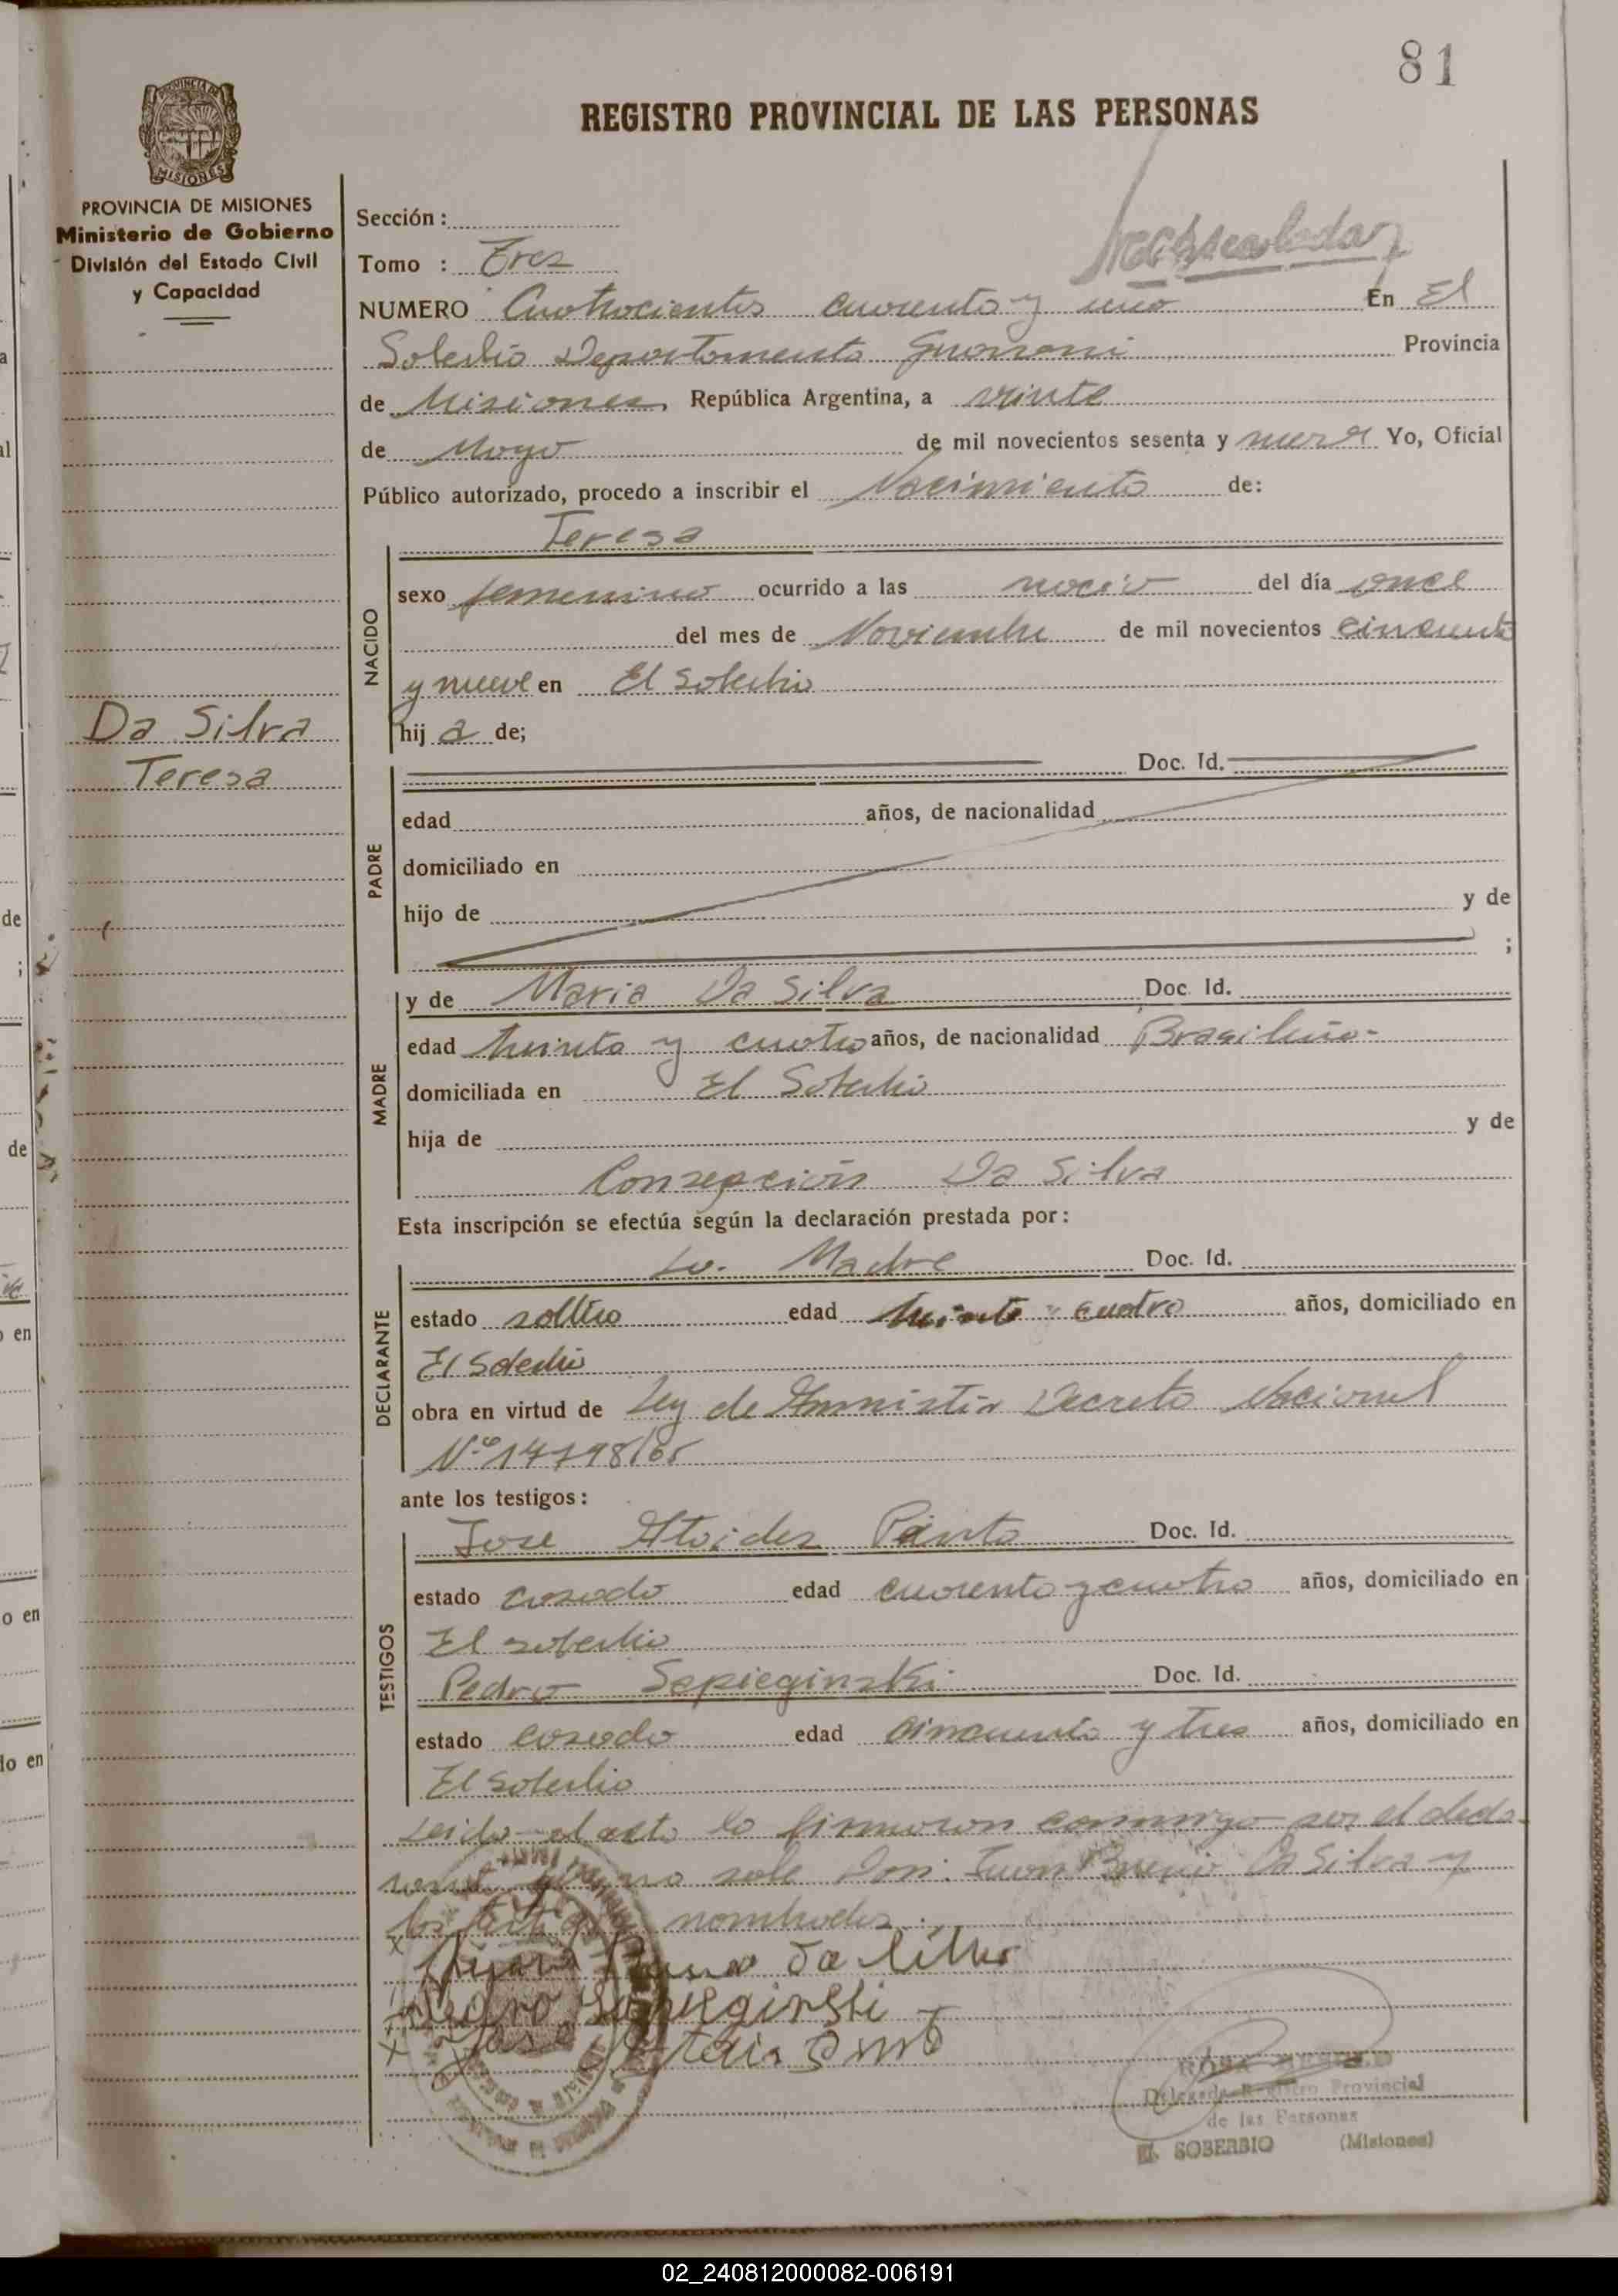 81
REGISTRO PROVINCIAL DE LAS PERSONAS
PROVINCIA DE
MISIONES
PROVINCIA DE MISIONES
Ministerio de Gobierno
División del Estado Civil
y Capacidad
Da Silva
Teresa
Sección:
Tomo : Tres
NUMERO Cuatrocientos cuarenta y uno En El
Soberbio Departamento Guarani Provincia
de Misiones, República Argentina, a veinte
de Mayo de mil novecientos sesenta y nueve Yo, Oficial
Público autorizado, procedo a inscribir el Nacimiento de:
Teresa
NACIDO
sexo femenino ocurrido a las del día once
del mes de Noviembre de mil novecientos cincuenta
y nueve en El Soberbio
hij a de;
PADRE
Doc. Id.
edad años, de nacionalidad
domiciliado en
hijo de y de
;
MADRE
y de Maria Da Silva Doc. Id.
edad treinta y cuatro años, de nacionalidad Brasileña-
domiciliada en El Soberbio
hija de y de
Consepción Da Silva
Esta inscripción se efectúa según la declaración prestada por:
DECLARANTE
La Madre Doc. Id.
estado soltera edad treinta y cuatro años, domiciliado en
El Soberbio
obra en virtud de Ley de Amnistia Decreto Nacional
Nº
ante los testigos:
TESTIGOS
Jose Pinto Doc. Id.
estado casado edad cuarenta y cuatro años, domiciliado en
El soberbio
Pedro Sepieginski Doc. Id.
estado casado edad cincuenta y tres años, domiciliado en
El Soberbio
Leida el acta la firmaron conmigo por el decla-
Don: Juan Da Silva y
los nombrados
da
Delegada Registro Provincial
de las Personas
EL SOBERBIO (Misiones)
02_240812000082-006191